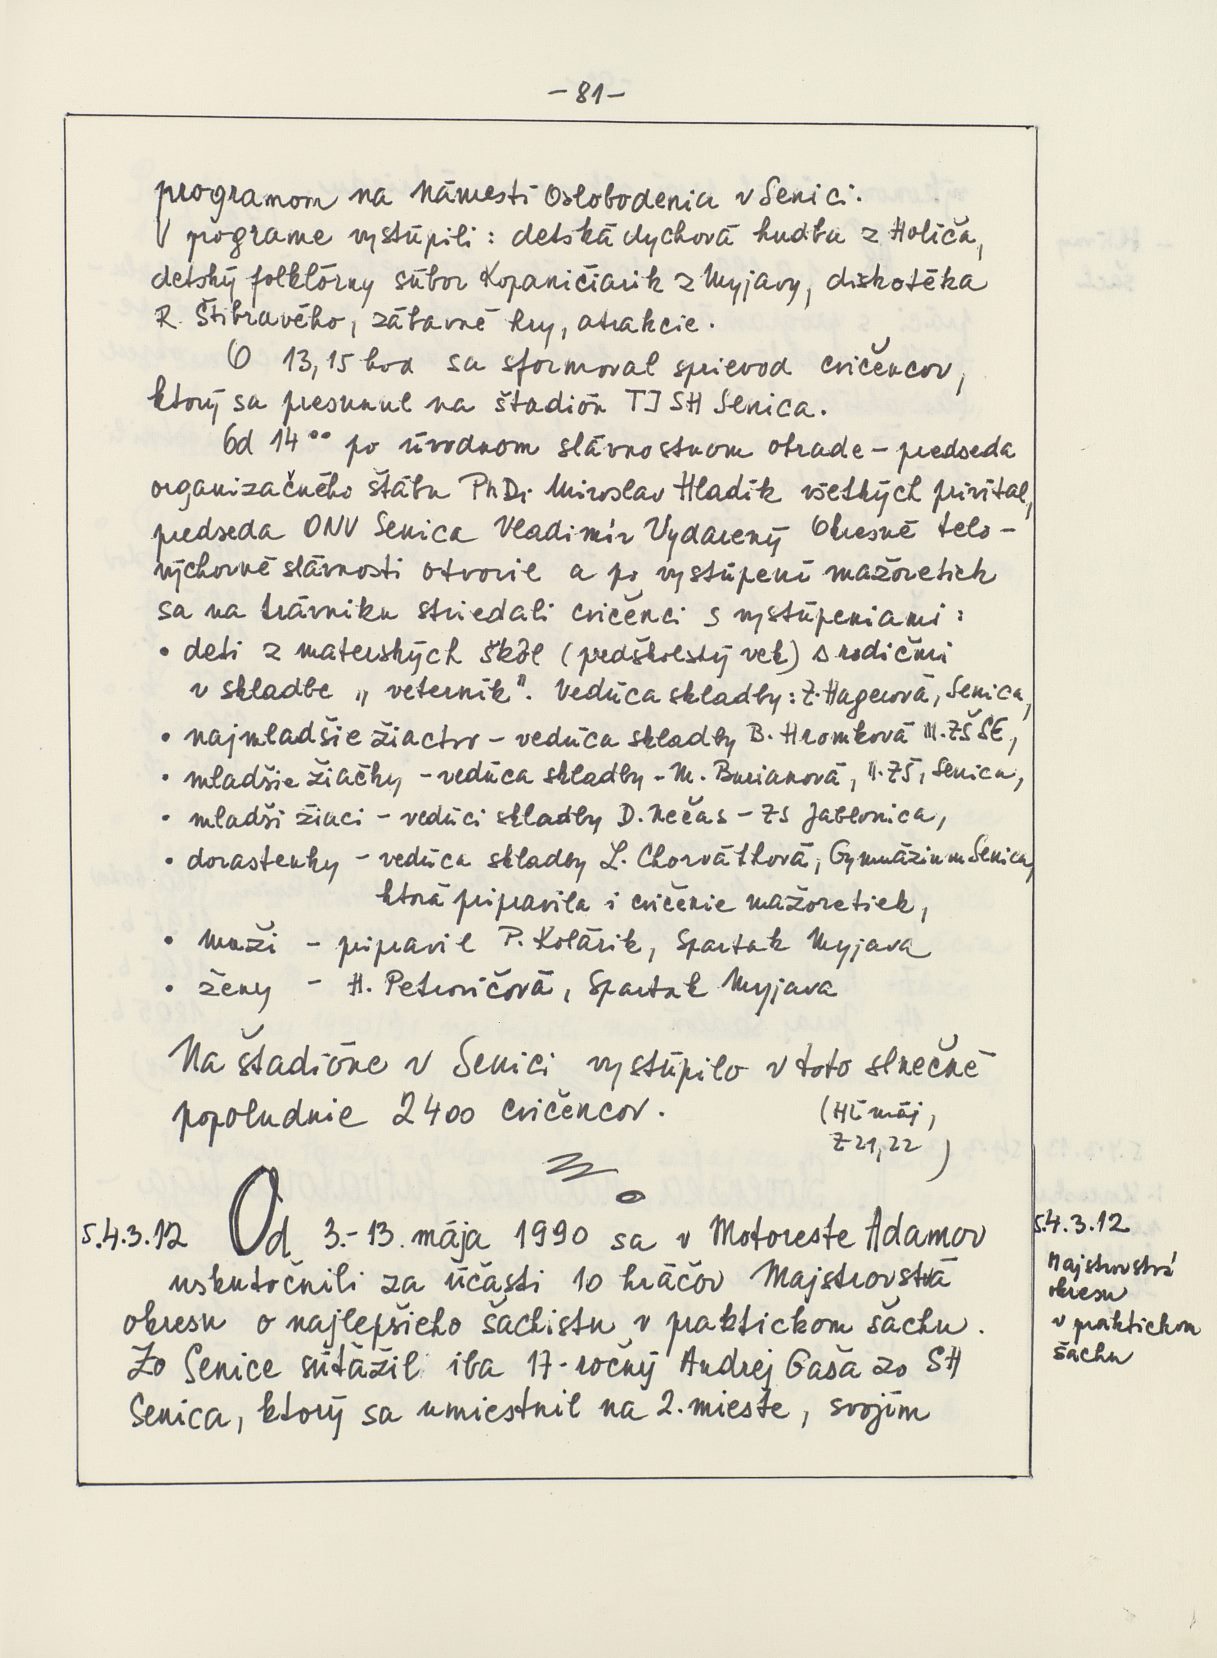 - 81 -
programom na Námestí Oslobodenia v Senici.
V programe vystúpili: detská dychová hudba z Holíča,
detský folklórny súbor Kopaničiarik z Myjavy, diskotéka
R. Štibravého, zábavné hry, atrakcie.
O 13,15 hod sa sformoval sprievod cvičencov,
ktorý sa presunul na štadión TJ SH Senica.
Od 14°° po úvodnom slávnostnom otrade - predseda
organizačného štábu PhDr. Miroslav Hladík všetkých privítal,
predseda ONV Senica Vladimír Vydarený Okresné telo-
výchovné slávnosti otvoril a po vystúpení mažoretiek
sa na trávniku striedali cvičenci s vystúpeniami:
• deti z materských škôl (predškolský vek) s rodičmi
v skladbe „veterník". Vedúca skladby: Z. Hagerová, Senica,
• najmladšie žiactvo - vedúca skladby B. Hromková III. ZŠ SE,
• mladšie žiačky - vedúca skladby - M. Burianová, II. ZŠ, Senica,
• mladší žiaci - vedúci skladby D. Nečas - ZŠ Jablonica,
• dorastenky - vedúca skladby L. Chorváthová, Gymnázium Senica,
ktorá pripravila i cvičenie mažoretiek,
• muži - pripravil P. Kolárik, Spartak Myjava
• ženy - H. Petrovičová, Spartak Myjava
Na štadióne v Senici vystúpilo v toto slnečné
popoludnie 2400 cvičencov.
(HL máj,
Z 21, 22)
5.4.3.12 Od 3.-13. mája 1990 sa v Motoreste Adamov
uskutočnili za účasti 10 hráčov Majstrovstvá
okresu o najlepšieho šachistu v praktickom šachu.
Zo Senice súťažil iba 17-ročný Andrej Gaša zo SH
Senica, ktorý sa umiestnil na 2. mieste, svojím
5.4.3.12
Majstrovstvá
okresu
v praktickom
šachu